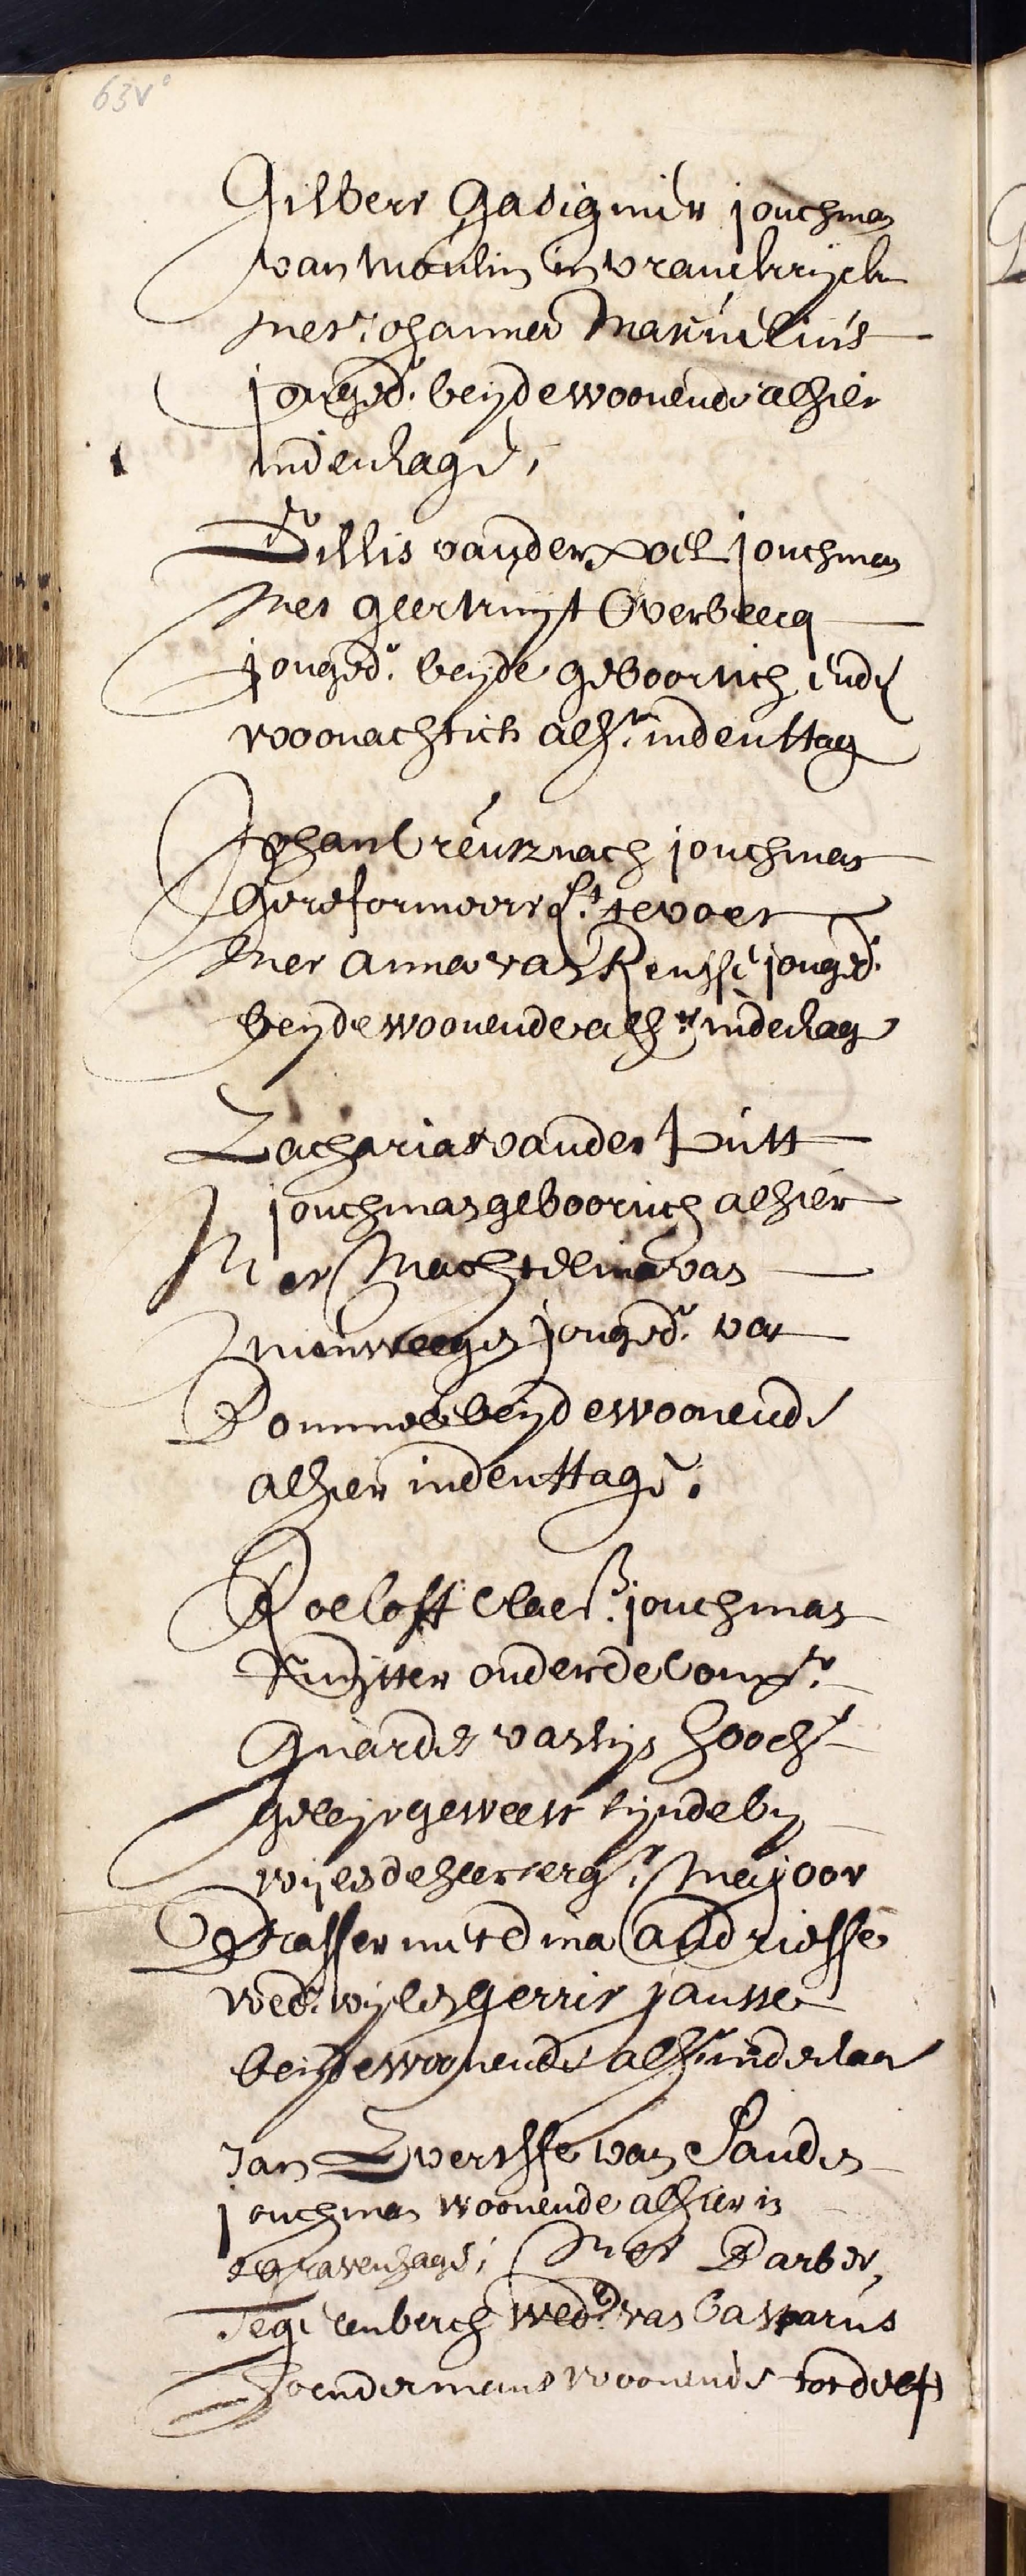 63v°
Gilbert Gadignier jonchman
van Moulin in Vranckrijck
met Johanna Manuelius
jonged.r beyde woonende alhier
inden hage,
Gillis vander Poel jonchman
Met Geertruyt Overbeecq
jonged.r beyde geboortich ende
woonachtich alh.r inden Hag
Johan Creutznach jonchman
Gereformeert te voet
Met Anna van jonged.r
beyde woonende alh.r inden hag
Zacharias vander Putt
jonchman geboortich alhier
Met Machtelina van
Nieuweegen jonged.r van
Bommel beyde woonende
alhier inden Hage.
Roeloff Claes.s jonchman
Ruytter onder de Comp.e
Guardes van sijn Hooch.t
geweest sijnde by
wijlen de heer serg.t Majoor
met Dina Andriesse
wed.e wijlen Gerrit Jansse
beyde woonende alh.r inden haer
Jan Evertsse van Sanden
jonchman woonende alhier in
sGravenhage; Met Barber
Tegelenberch wed.e van Casparus
woonende tot Delft